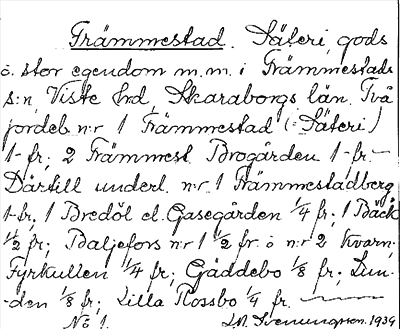 Främmestad. Säteri, gods
o. stor egendom m.m. i Främmestads
s:n, Viste hrd, Skaraborgs län. Två
jordeb. n:r 1 Främmestad (:Säteri)
1- fr; 2 Främmest. Brogården 1- fr. —
Därtill underl. n:r 1 Främmestadberg
1- fr, 1 Bredöl el. Gasegården 1/4 fr; 1 Bäck
1/2 fr; Baljefors n:r 1 1/2 fr o n:r 2 Kvarn,
Fyrkullen 1/4 fr; Gäddebo 1/8 fr; Lun-
-den 1/8 fr; Lilla Rossbo 1/4 fr. —
No 1. Svenungson. 1939